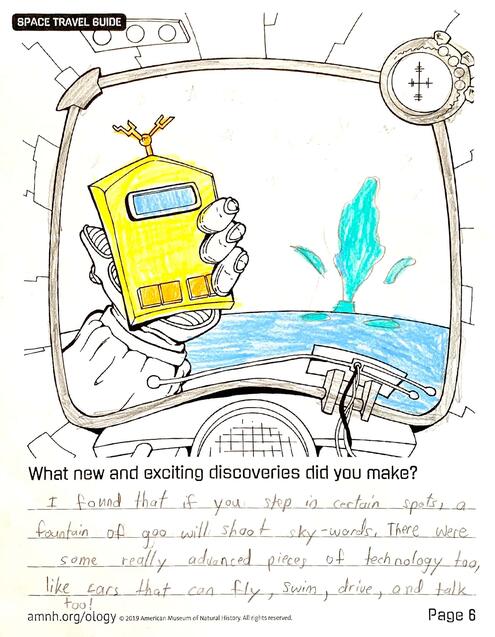 SPACE TRAVEL GUIDE
What new and exciting discoveries did you make?
I found that if you step in certain spots, a
fountain of goo will shoot sky-words. There were
some really advanced pieces of technology too,
like cars that can fly, swim, drive, and talk
too!
amnh.org/ology © 2019 American Museum of Natural History. All rights reserved. Page 6